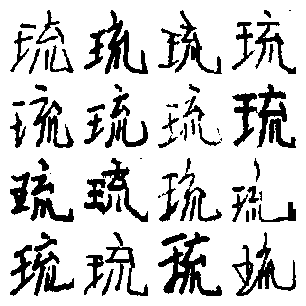 琉琉琉琉
琉琉琉琉
琉琉琉琉
琉琉琉琉